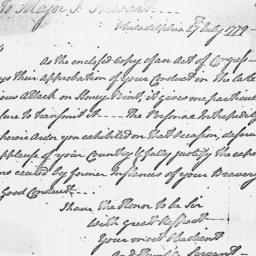 To Major J. Stewart
Philadelphia 27th July 1779
As the enclosed Copy of an Act of Congress
ys their approbation of your Conduct in the late
ious Attack on Stoney Point, it gives me particul
sure to transmit it. The Personal Intrepidity
Behavior you exhibited on that occasion, deserv
applause of your Country & fully justify the expec
ns caused by former Instances of your Bravery
Good Conduct
I have the Honor to be Sir
With great Respect
Your most Obedient
And Humble Servant